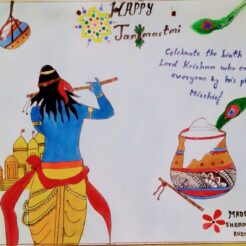 HAPPY
Janmastmi
Celebrate the birth
Lord Krishna who en
everyone by his pl
Mischief
MADE